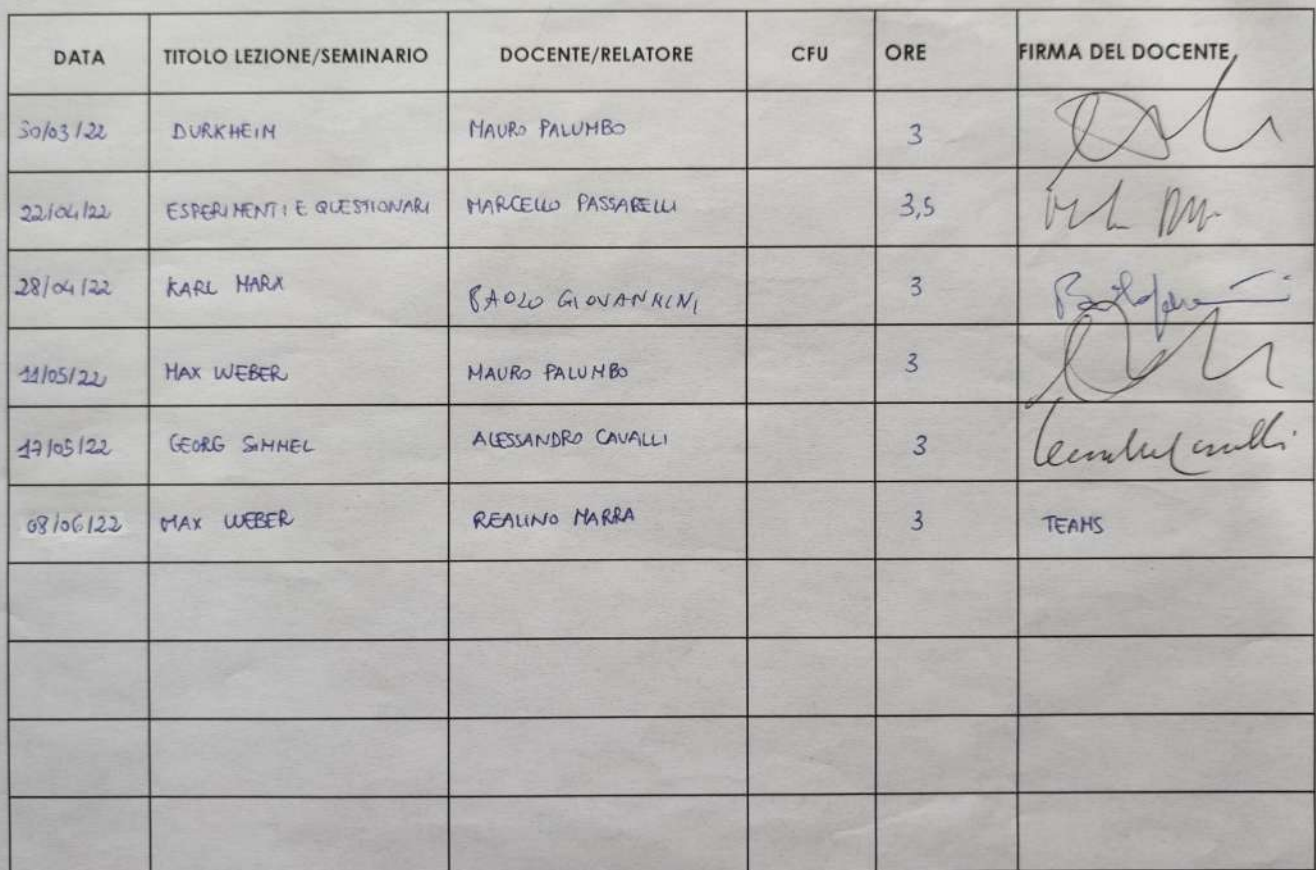 DATA TITOLO LEZIONE/SEMINARIO DOCENTE/RELATORE CFU ORE FIRMA DEL DOCENTE
30/03/22 DURKHEIM MAURO PALUMBO 3
22/04/22 ESPERIMENTI E QUESTIONARI MARCELLO PASSARELLI 3,5
28/04/22 KARL MARX PAOLO GIOVANNINI 3
11/05/22 MAX WEBER MAURO PALUMBO 3
17/05/22 GEORG SIMMEL ALESSANDRO CAVALLI 3
08/06/22 MAX WEBER REALINO MARRA 3 TEAMS